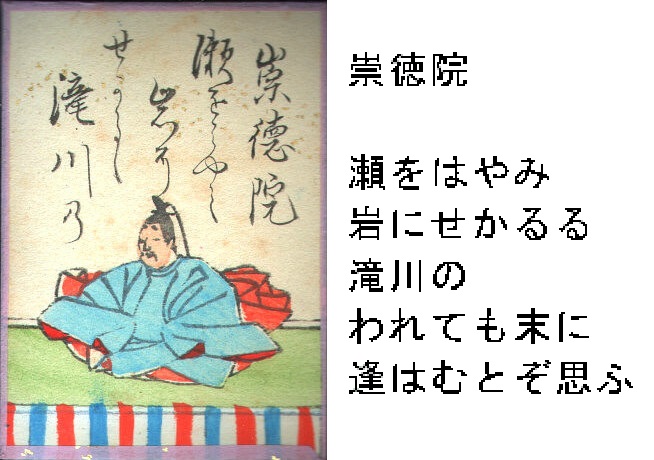 崇徳院
瀬をはやみ
岩に
せかるゝ
滝川乃
崇徳院
瀬をはやみ
岩にせかるる
滝川の
われても末に
逢はむとぞ思ふ